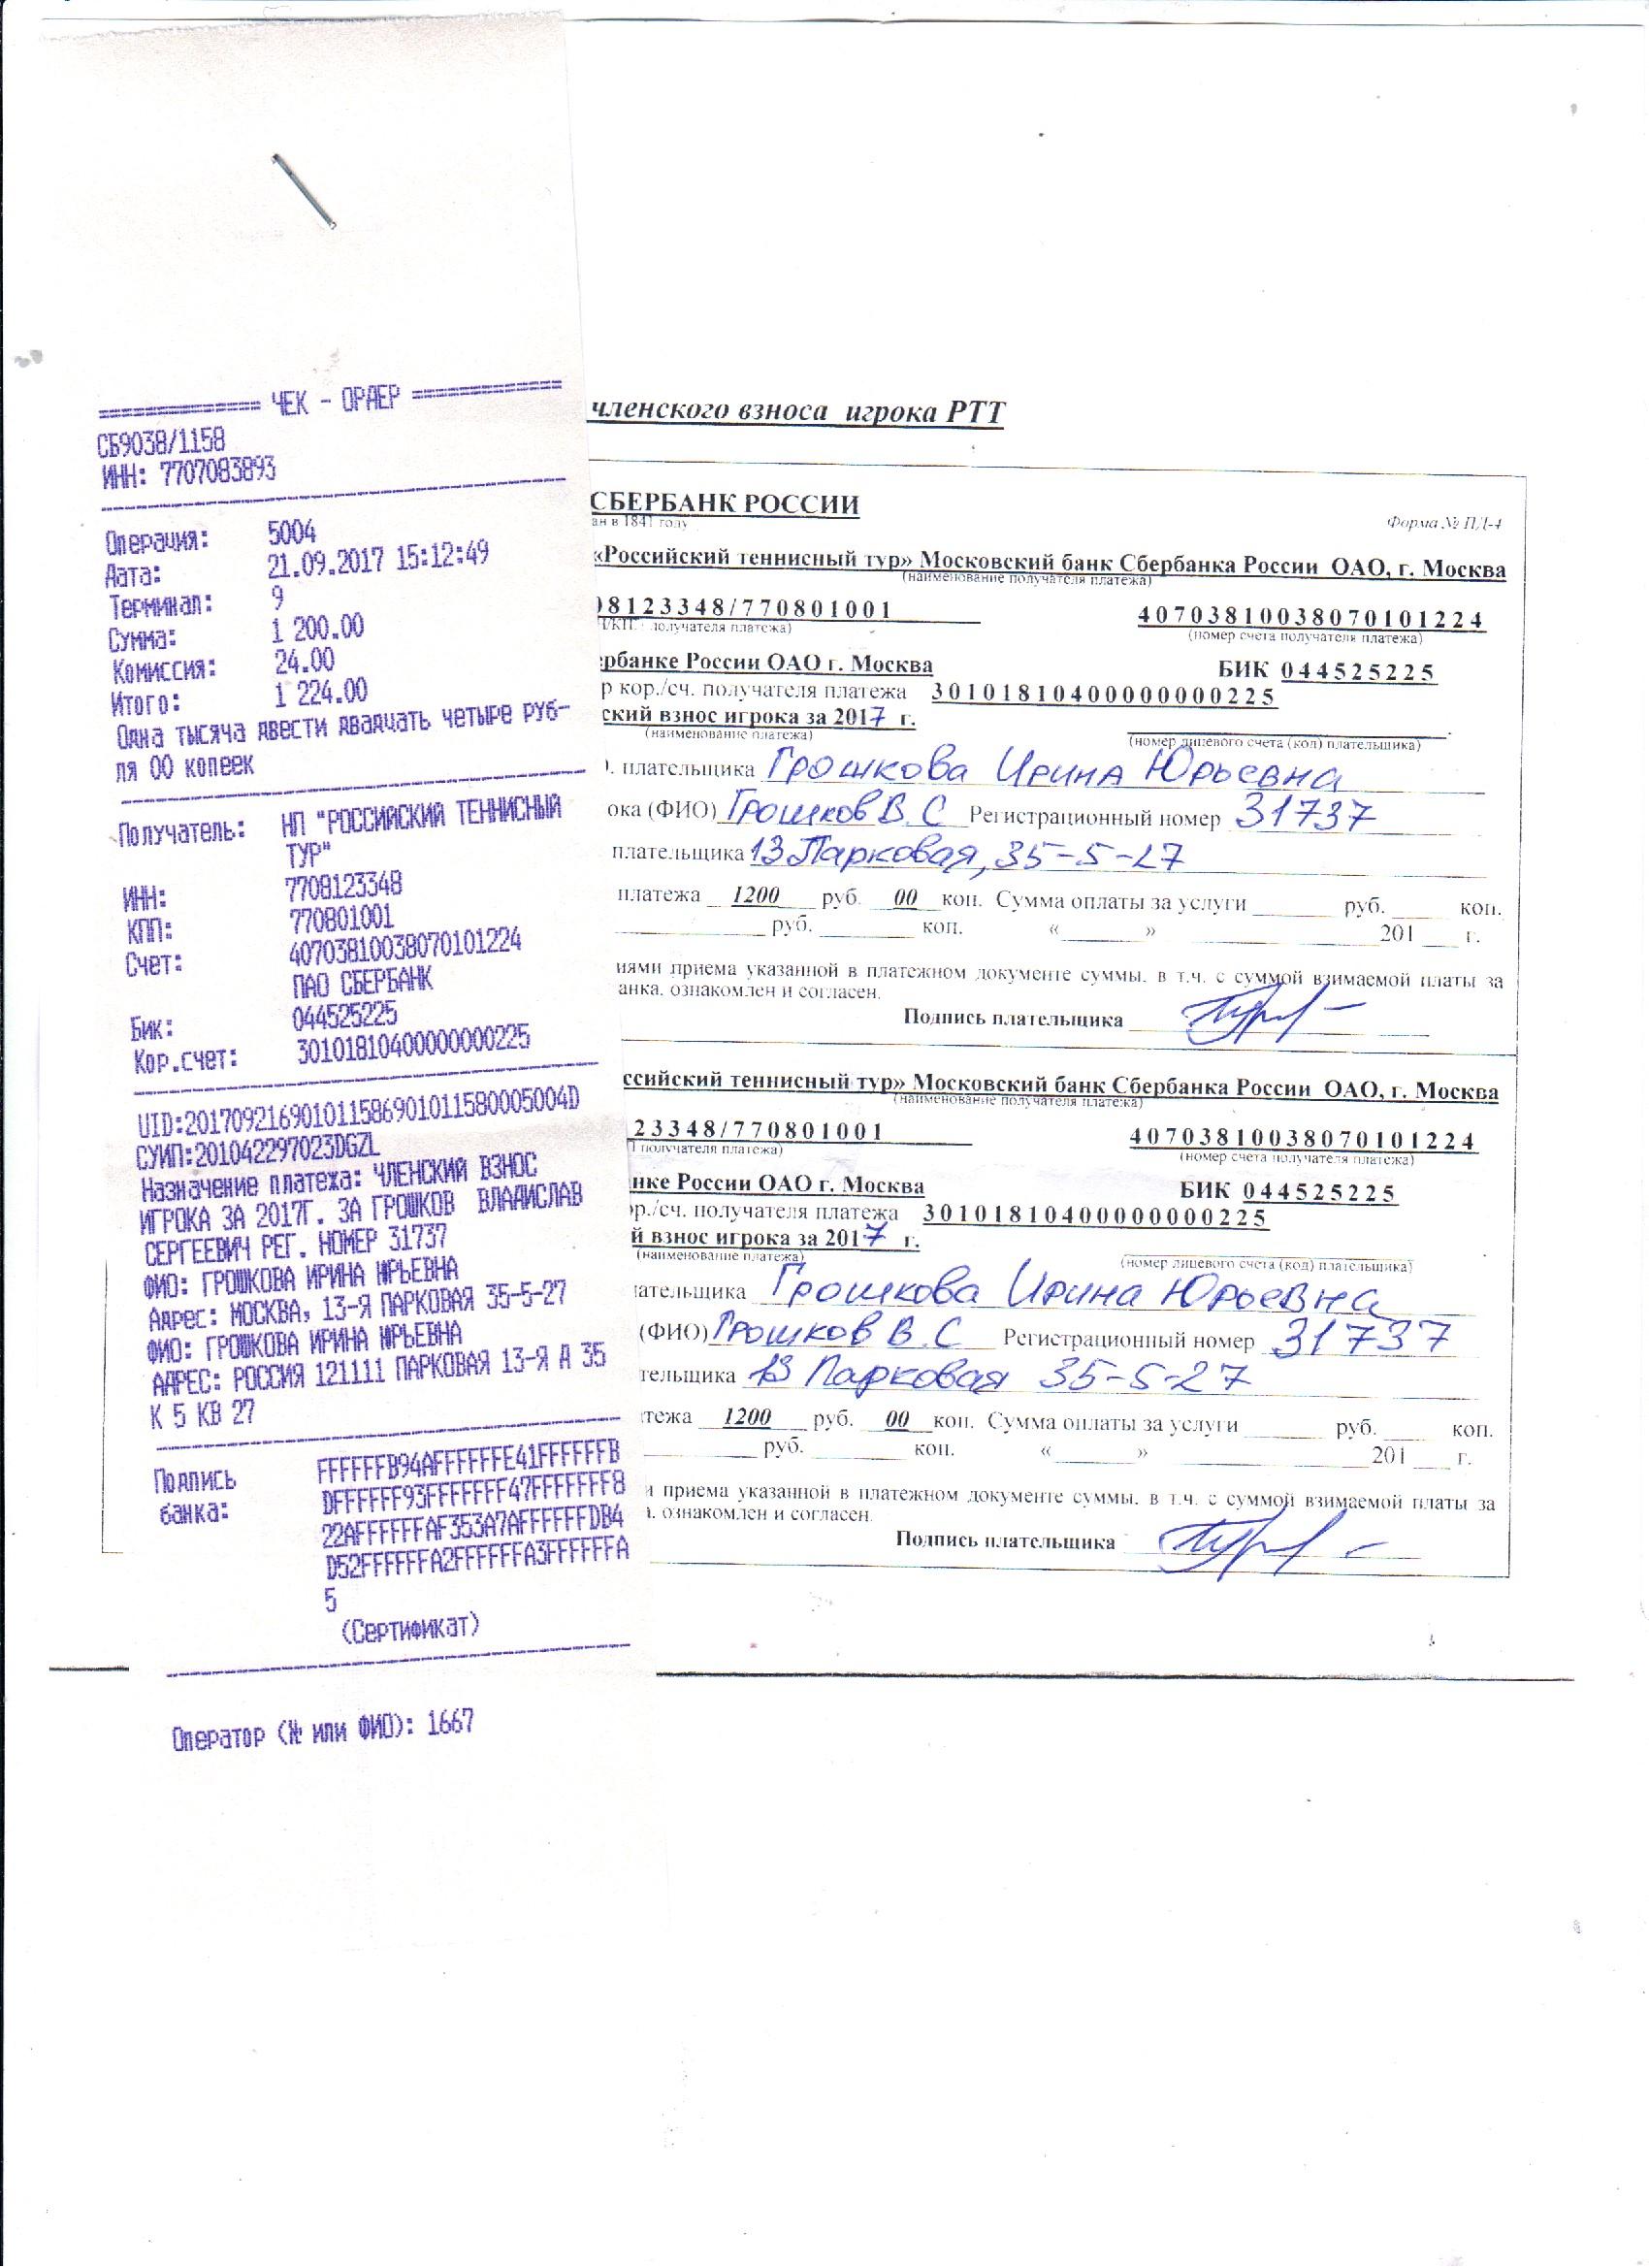 ============ ЧЕК - ОРДЕР ============
СБ9038/1158
ИНН: 7707083893
Операция: 5004
Дата: 21.09.2017 15:12:49
Терминал: 9
Сумма: 1 200.00
Комиссия: 24.00
Итого: 1 224.00
Одна тысяча двести двадцать четыре руб-
ля 00 копеек
Получатель: НП "РОССИЙСКИЙ ТЕННИСНЫЙ
ТУР"
ИНН: 7708123348
КПП: 770801001
Счет: 40703810038070101224
ПАО СБЕРБАНК
Бик: 044525225
Кор.счет: 30101810400000000225
UID:201709216901011586901011580005004D
СУИП:201042297023DGZL
Назначение платежа: ЧЛЕНСКИЙ ВЗНОС
ИГРОКА ЗА 2017Г. ЗА ГРОШКОВ ВЛАДИСЛАВ
СЕРГЕЕВИЧ РЕГ. НОМЕР 31737
ФИО: ГРОШКОВА ИРИНА ЮРЬЕВНА
Адрес: МОСКВА, 13-Я ПАРКОВАЯ 35-5-27
ФИО: ГРОШКОВА ИРИНА ЮРЬЕВНА
АДРЕС: РОССИЯ 121111 ПАРКОВАЯ 13-Я Д 35
К 5 КВ 27
Подпись FFFFFFB94AFFFFFFE41FFFFFFB
банка: DFFFFFF93FFFFFFF47FFFFFFF8
22AFFFFFFAF353A7AFFFFFFDB4
D52FFFFFFA2FFFFFFA3FFFFFFA
5
(Сертификат)
Оператор (№ или ФИО): 1667
членского взноса игрока РТТ
СБЕРБАНК РОССИИ
ан в 1841 году Форма № ПД-4
«Российский теннисный тур» Московский банк Сбербанка России ОАО, г. Москва
(наименование получателя платежа)
08123348/770801001 40703810038070101224
получателя платежа) (номер счета получателя платежа)
рбанке России ОАО г. Москва БИК 044525225
р кор./сч. получателя платежа 30101810400000000225
ский взнос игрока за 2017 г.
(наименование платежа) (номер лицевого счета (код) плательщика)
. плательщика Грошкова Ирина Юрьевна
ока (ФИО) Грошков В.С Регистрационный номер 31737
плательщика 13 Парковая, 35-5-27
платежа 1200 руб. 00 коп. Сумма оплаты за услуги ______ руб. ____ коп.
__________ руб. ______ коп. «______» __________ 201 ___ г.
иями приема указанной в платежном документе суммы, в т.ч. с суммой взимаемой платы за
анка, ознакомлен и согласен.
Подпись плательщика
ссийский теннисный тур» Московский банк Сбербанка России ОАО, г. Москва
(наименование получателя платежа)
23348/770801001 40703810038070101224
получателя платежа) (номер счета получателя платежа)
нке России ОАО г. Москва БИК 044525225
ор./сч. получателя платежа 30101810400000000225
й взнос игрока за 2017 г.
(наименование платежа) (номер лицевого счета (код) плательщика)
ательщика Грошкова Ирина Юрьевна
(ФИО) Грошков В.С Регистрационный номер 31737
тельщика 13 Парковая 35-5-27
тежа 1200 руб. 00 коп. Сумма оплаты за услуги ______ руб. ____ коп.
__________ руб. ______ коп. «______» __________ 201 ___ г.
и приема указанной в платежном документе суммы, в т.ч. с суммой взимаемой платы за
а, ознакомлен и согласен.
Подпись плательщика